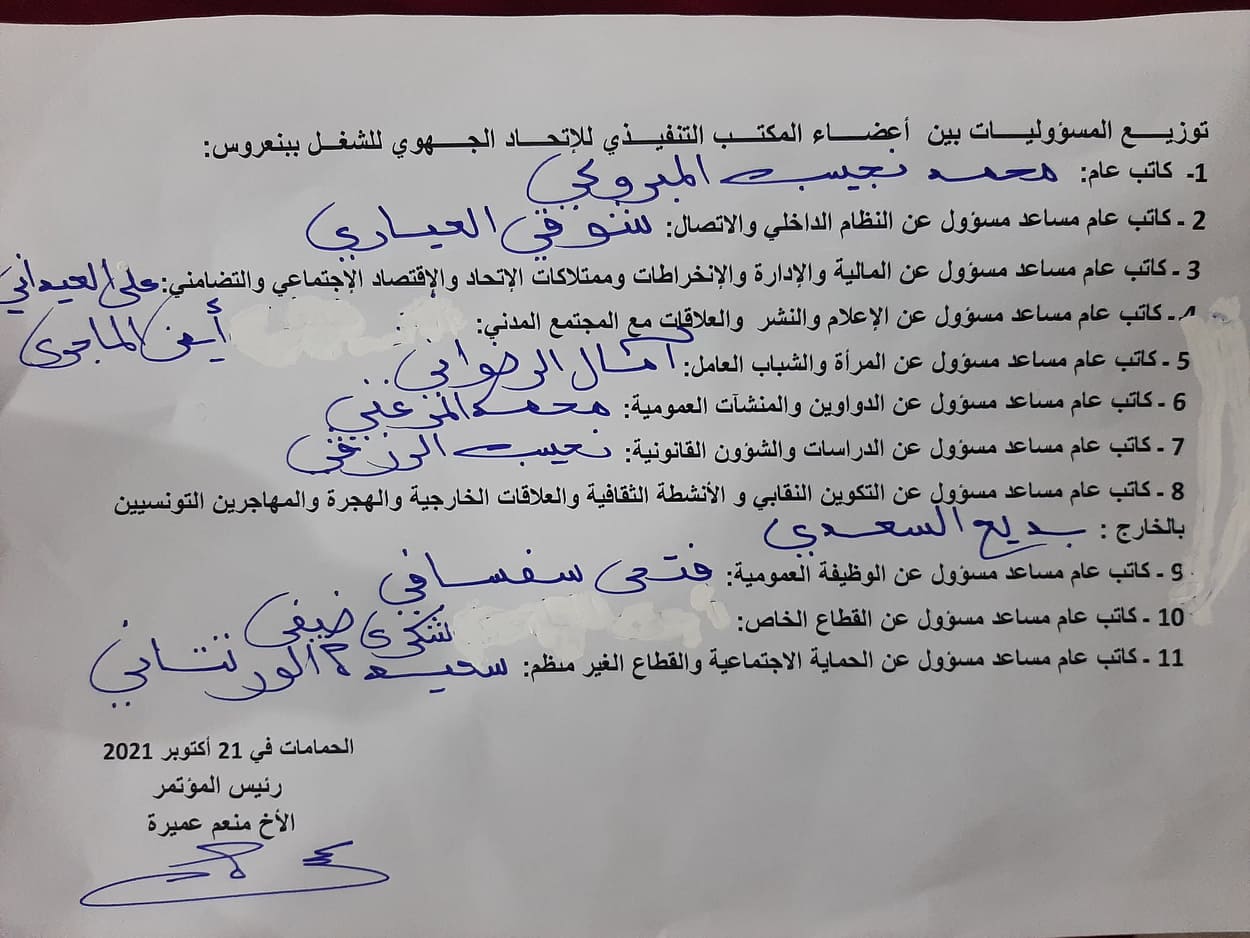 توزيــــع المسؤوليـــات بين أعضـــاء المكتـــب التنفيـــذي للإتحـــاد الجـــهوي للشغـــل ببنعروس:
1- كاتب عام: محمد نجيب المبروكي
2 - كاتب عام مساعد مسؤول عن النظام الداخلي والاتصال: شوقي العياري
3 - كاتب عام مساعد مسؤول عن المالية والإدارة والإنخراطات وممتلاكات الإتحاد والإقتصاد الإجتماعي والتضامني: علي العيداني
4 - كاتب عام مساعد مسؤول عن الإعلام والنشر والعلاقات مع المجتمع المدني: أيمن الماجري
5 - كاتب عام مساعد مسؤول عن المرأة والشباب العامل: آمال الرحواني
6 - كاتب عام مساعد مسؤول عن الدواوين والمنشآت العمومية: محمد المزغني
7 - كاتب عام مساعد مسؤول عن الدراسات والشؤون القانونية: نجيب
8 - كاتب عام مساعد مسؤول عن التكوين النقابي و الأنشطة الثقافية والعلاقات الخارجية والهجرة والمهاجرين التونسيين
بالخارج : بديع السعدي
9 - كاتب عام مساعد مسؤول عن الوظيفة العمومية: فتحي سفسافي
10 - كاتب عام مساعد مسؤول عن القطاع الخاص: شكري ضيفي
11 - كاتب عام مساعد مسؤول عن الحماية الاجتماعية والقطاع الغير منظم: سعيدة الورتتاني
الحمامات في 21 أكتوبر 2021
رئيس المؤتمر
الأخ منعم عميرة